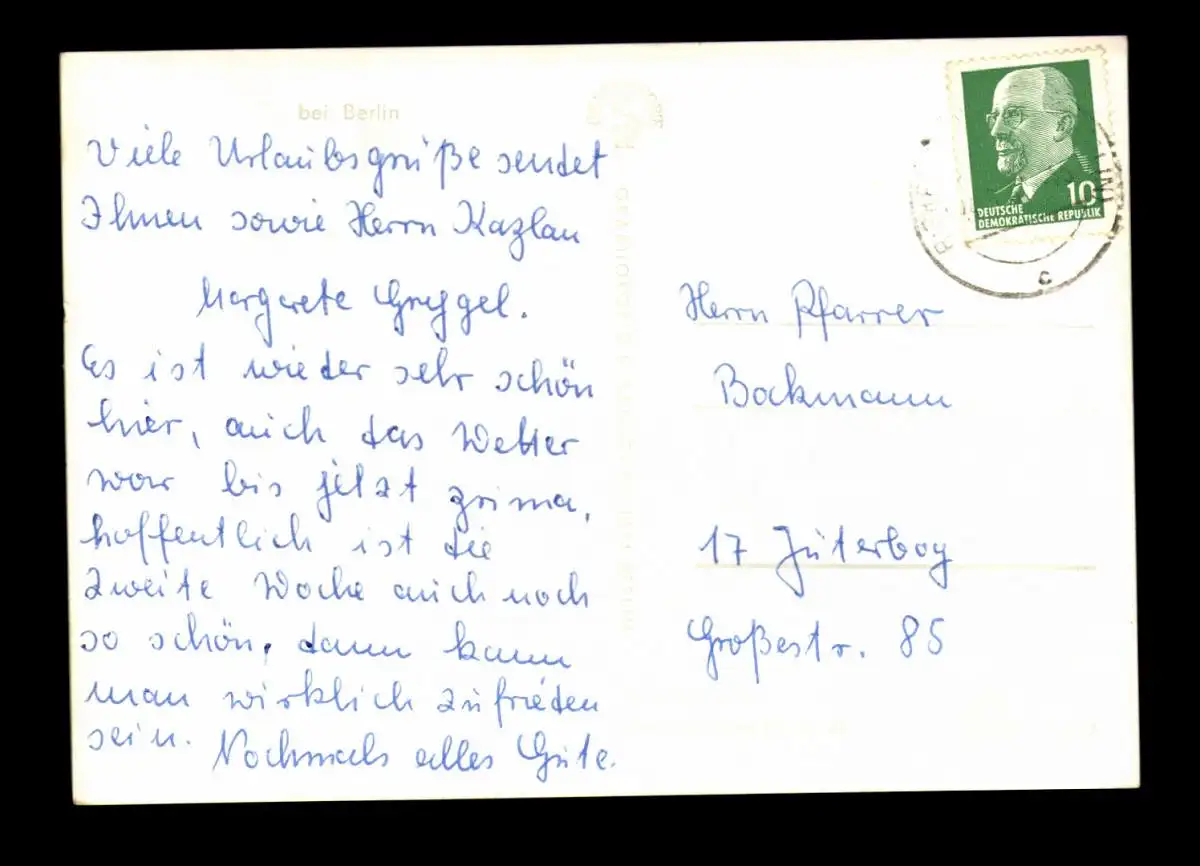 bei Berlin
Viele Urlaubsgrüße sendet
Ihnen sowie Herrn Kazlau
Margarete
Es ist wieder sehr schön
hier, auch das Wetter
war bis jetzt prima,
hoffentlich ist die
zweite Woche auch noch
so schön, dann kann
man wirklich zufrieden
sein. Nochmals alles Gute.
10
DEUTSCHE
DEMOKRATISCHE REPUBLIK
c
Herrn Pfarrer
Bockmann
17 Jüterbog
Großestr. 85